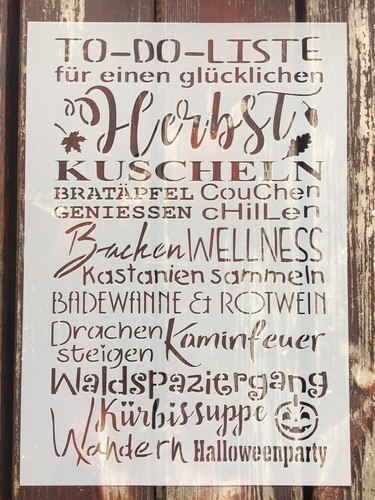 TO-DO-LISTE
für einen glücklichen
Herbst
KUSCHELN
BRATÄPFEL CouChen
GENIESSEN cHiLLen
Backen WELLNESS
Kastanien sammeln
BADEWANNE & ROTWEIN
Drachen steigen Kaminfeuer
Waldspaziergang
Kürbissuppe
Wandern Halloweenparty